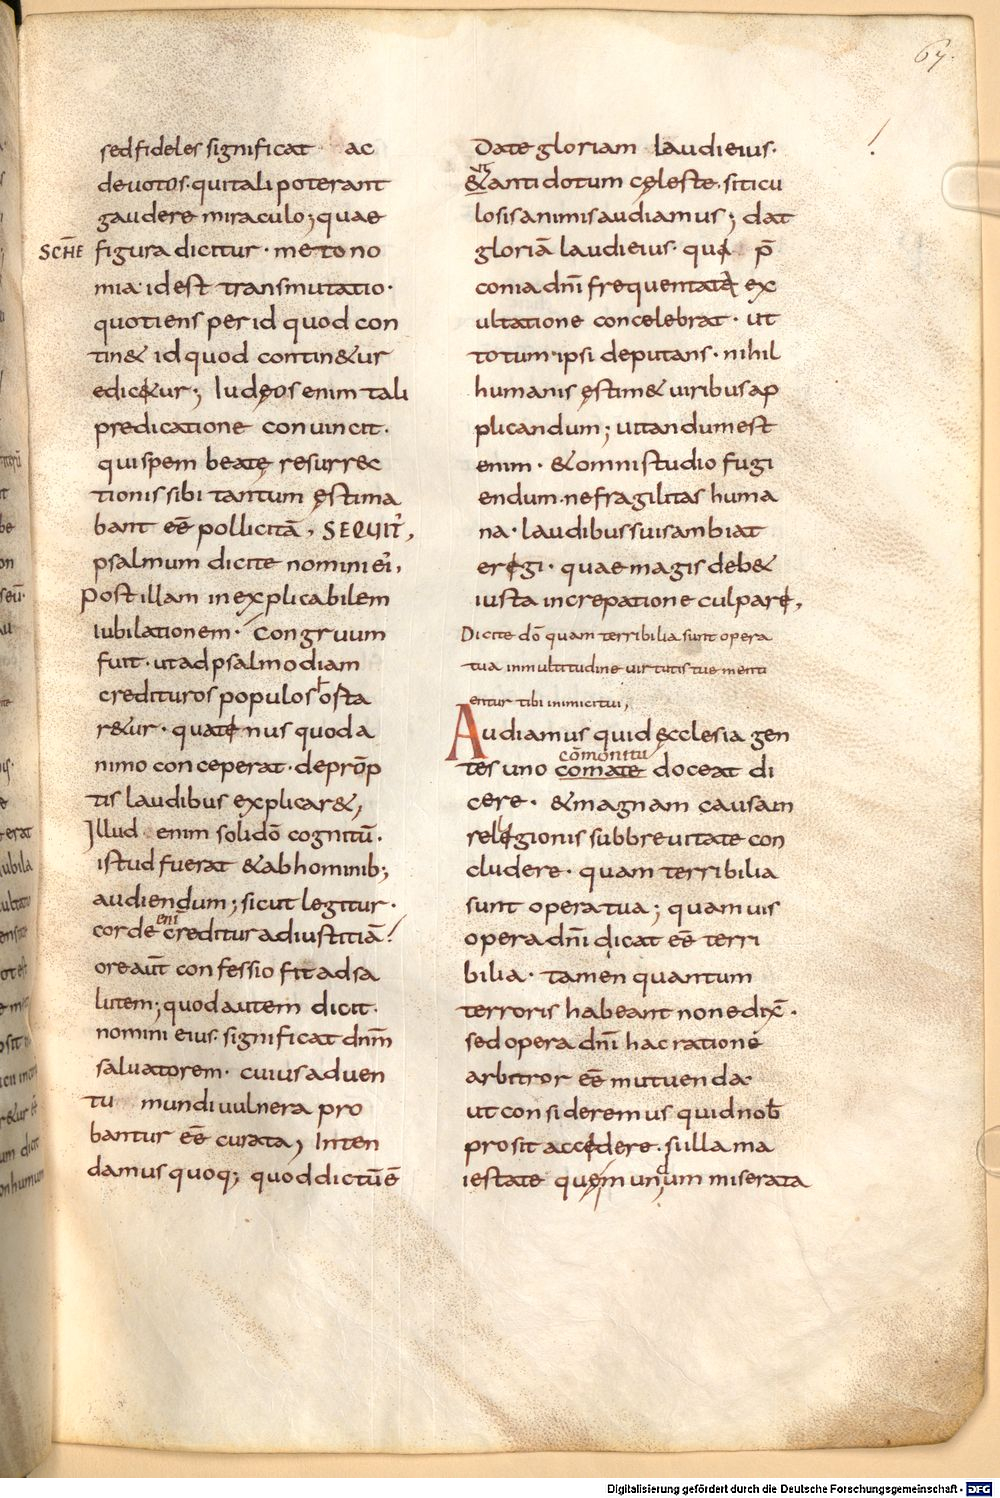 67.
sed fideles significat ac
deuotos· qui tali poterant
gaudere miraculo; quae
SCHE figura dicitur· metono
mia· id est transmutatio·
quotiens per id quod con
tin& id quod contin&ur
edic&ur; Iudęos enim tali
predicatione conuincit·
qui spem beatę resurrec
tionis sibi tantum ęstima
bant eē pollicitā, SEQUIT̄,
psalmum dicite nomini ei',
Post illam inexplicabilem
iubilationem· congruum
fuit· ut ad psalmodiam
credituros populos hosta
r&ur· quatenus quod a
nimo conceperat· deprōp
tis laudibus explicar&,
Illud enim solidō cognitū·
istud fuerat & ab hominib;
audiendum; sicut legitur·
enī
corde creditur ad iustitiā!
ore aūt confessio fit ad sa
lutem; quod autem dicit·
nomini eius· significat dn̄m
saluatorem· cuius aduen
tu mundi uulnera pro
bantur eē curata, Inten
damus quoq; quod dictū ē
Date gloriam laudi eius·
ut
& antidotum cęleste, siticu
losis animis audiamus; dat
gloriā laudi eius· qui p̄
conia dn̄i frequentata ex
ultatione concelebrat· ut
totum ipsi deputans· nihil
humanis ęstim& uiribus ap
plicandum; uitandum est
enim· & omni studio fugi
endum· ne fragilitas huma
na· laudibus suis ambiat
eregi· quae magis deb&
iusta increpatione culpari,
Dicite dō quam terribilia sunt opera
tua in multitudine uirtutis tue menti
entur tibi inimici tui,
Audiamus quid ęcclesia gen
cōmonitu
tes uno comate doceat di
cere· & magnam causam
religionis sub breuitate con
cludere· quam terribilia
sunt opera tua; quamuis
opera dn̄i dicat eē terri
bilia· tamen quantum
terroris habeant non edix̄·
sed opera dn̄i hac ratione
arbitror eē mutuenda·
ut consideremus quid nob̄
prosit accedere· si illa ma
iestate quem unquum miserata